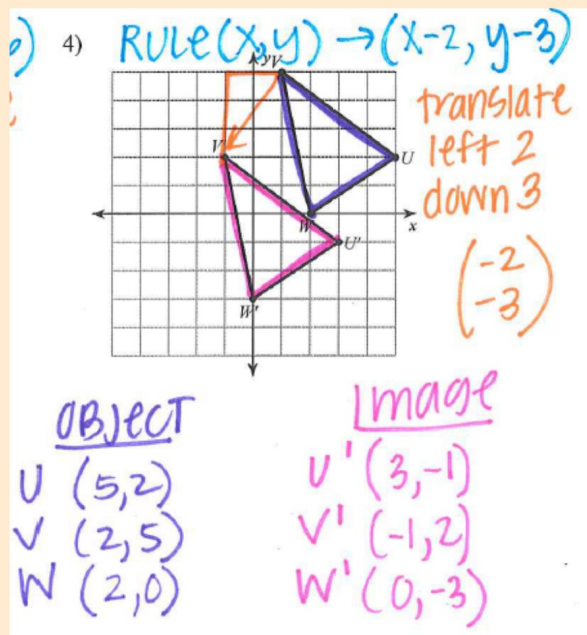 4) RULE (x,y) → (x-2, y-3)
y V
translate
left 2
down 3
V'
U
W
x
U'
W'
(-2
-3)
OBJECT
U (5,2)
V (2,5)
W (2,0)
Image
U' (3,-1)
V' (-1,2)
W' (0,-3)